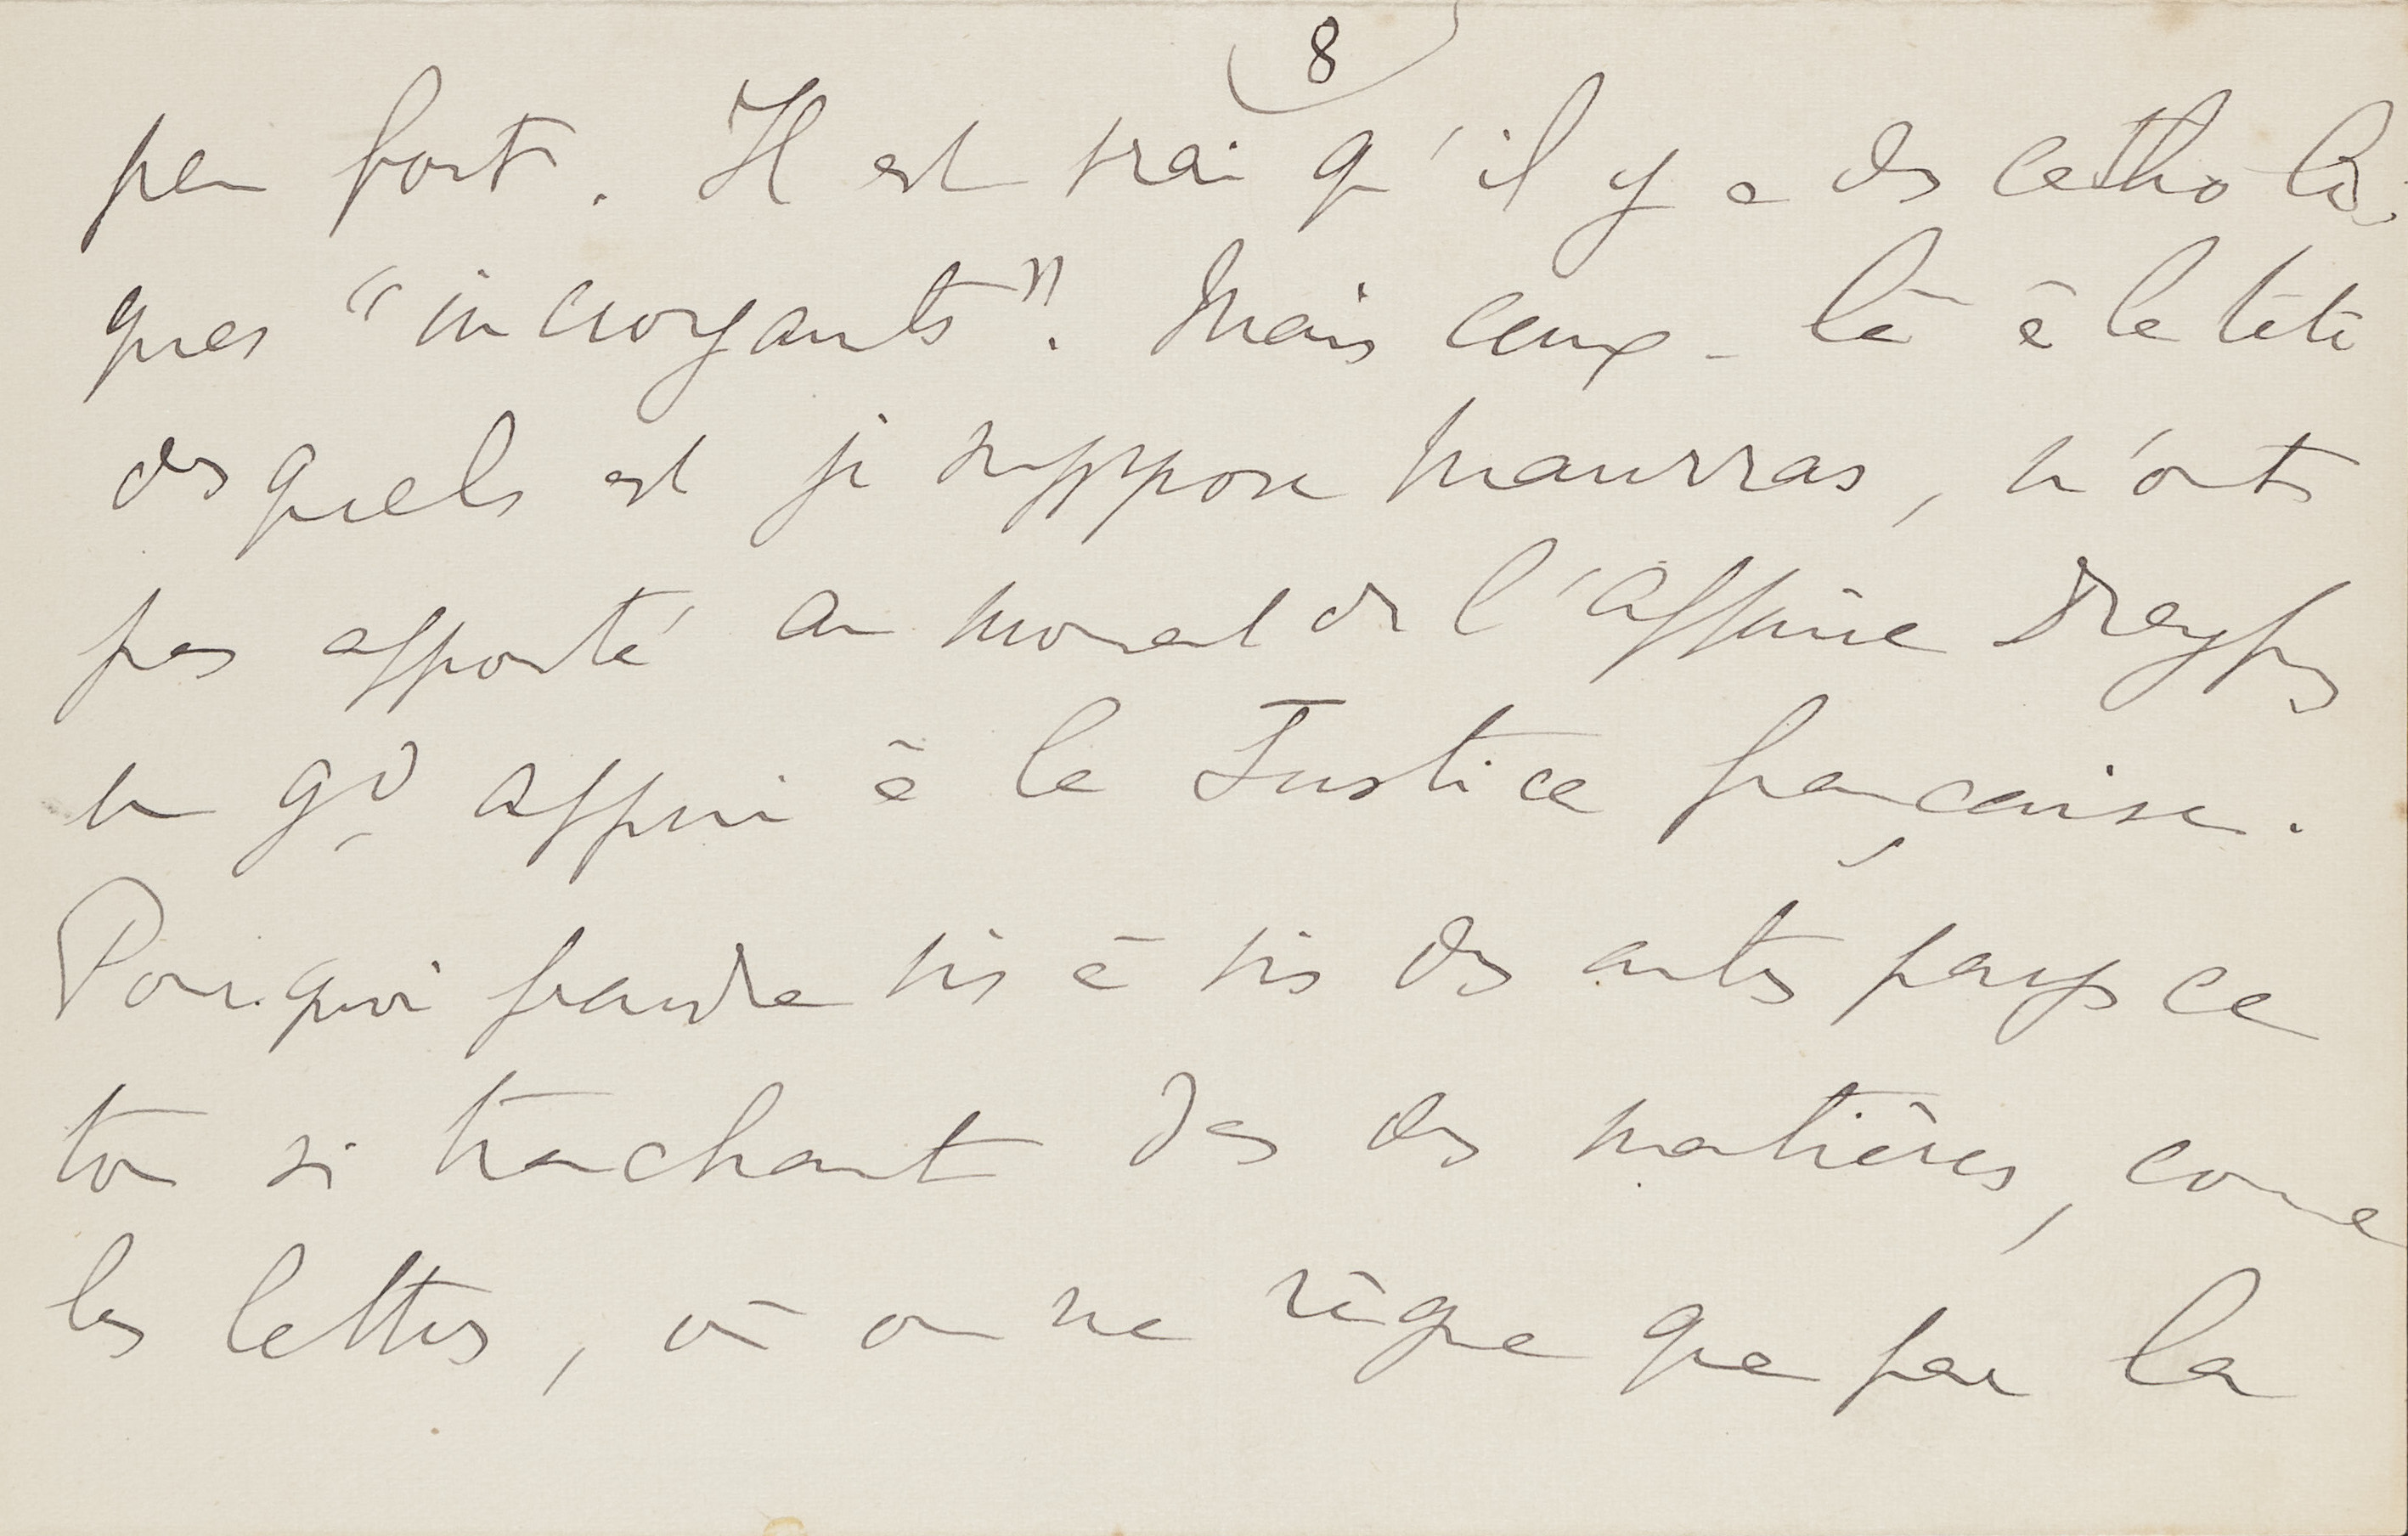 8
peu fort. Il est vrai qu'il y a des catholi-
ques "incroyants". Mais ceux-là à la tête
desquels est je suppose Maurras, n'ont
pas apporté au moment de l'affaire Dreyfus
un gd appui à la Justice française.
Pourquoi prendre vis à vis des autres pays ce
ton si tranchant dans des matières, comme
les lettres, où on ne règne que par la